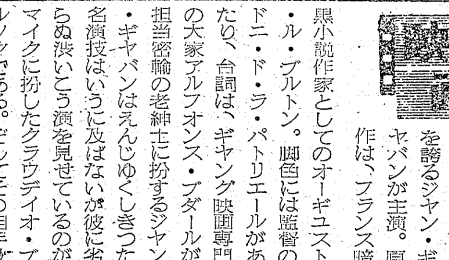 を誇るジャン・ギ
ャバンが主演。原
作は、フランス暗
黒小説作家としてのオーギュスト
・ル・ブルトン。脚色には監督の
ドニ・ド・ラ・パトリエールがあ
たり、台詞は、ギャング映画専門
の大家アルフオンス・ブダールが
担当密輸の老紳士に扮するジャン
・ギャバンはえんじゆくしきつた
名演技はいうに及ばないが彼に劣
らぬ渋いこう演を見せているのが
マイクに扮したクラウデイオ・ブ
ルックである。